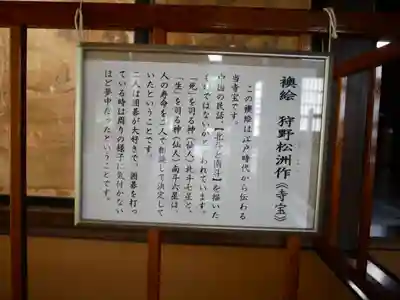 襖絵　狩野松洲作《寺宝》
この襖絵は江戸時代から伝わる
当寺宝です。
中国の民話、【北斗と南斗】を描いた
ものではないかと言われています。
「死」を司る神（仙人）北斗七星と、
「生」を司る神（仙人）南斗六星は、
人の寿命を二人で相談して決定して
いたということです。
二人は囲碁が大好きで、囲碁を打っ
ている時は周りの様子に気付かない
ほど夢中だったということです。